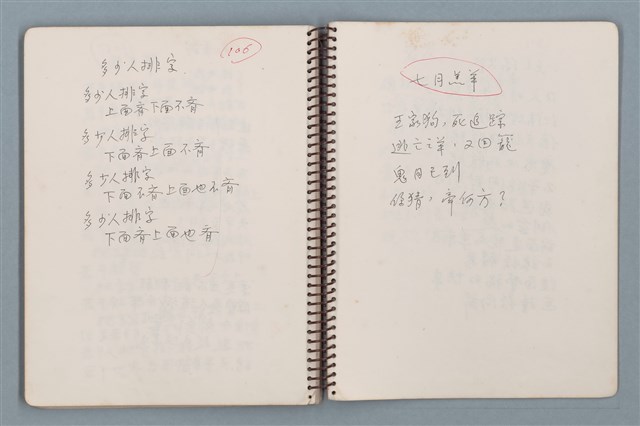 多少人排字
106
多少人排字
上面齐下面不齐
多少人排字
下面齐上面不齐
多少人排字
下面不齐上面也不齐
多少人排字
下面齐上面也齐
七月羔羊
王家狗，死追踪
逃亡羊，又回籠
鬼月已到
任猜，帝何方了